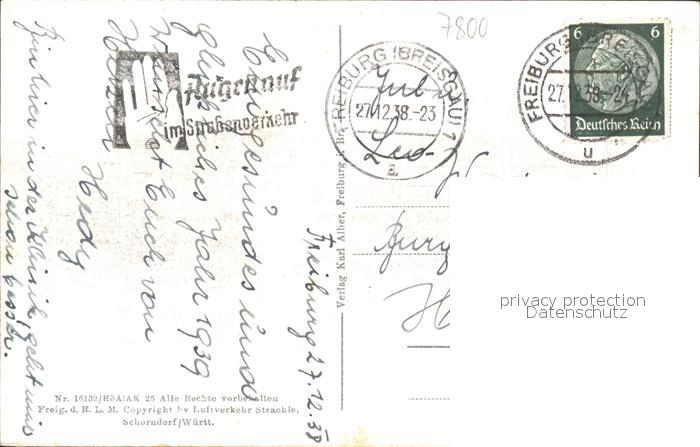 7800
6 6
Deutsches Reich
FREIBURG (BREISGAU) 1
27.12.38.-23
a
FREIBURG (BREISGAU)
27.12.38.-24
u
Augen auf
im Straßenverkehr
Freiburg 27.12.38
Ein gesundes und
glückliches Jahr 1939
wünscht Euch von
Herzen Hedy
Bin hier in der Klinik, geht mir
schon besser.
Leo
Burg
H
Verlag Karl Alber, Freiburg i. Br.
Nr. 16132/RöA/AK 25 Alle Rechte vorbehalten
Freig. d. R. L. M. Copyright by Luftverkehr Straehle,
Schorndorf/Württ.
privacy protection
Datenschutz